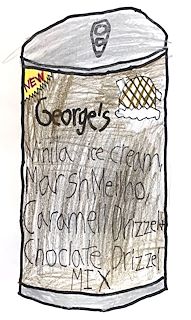 NEW
George's
Vinlla ice cream,
MarshMellno,
Caramel Drizzel
Choclate Drizzel
MIX